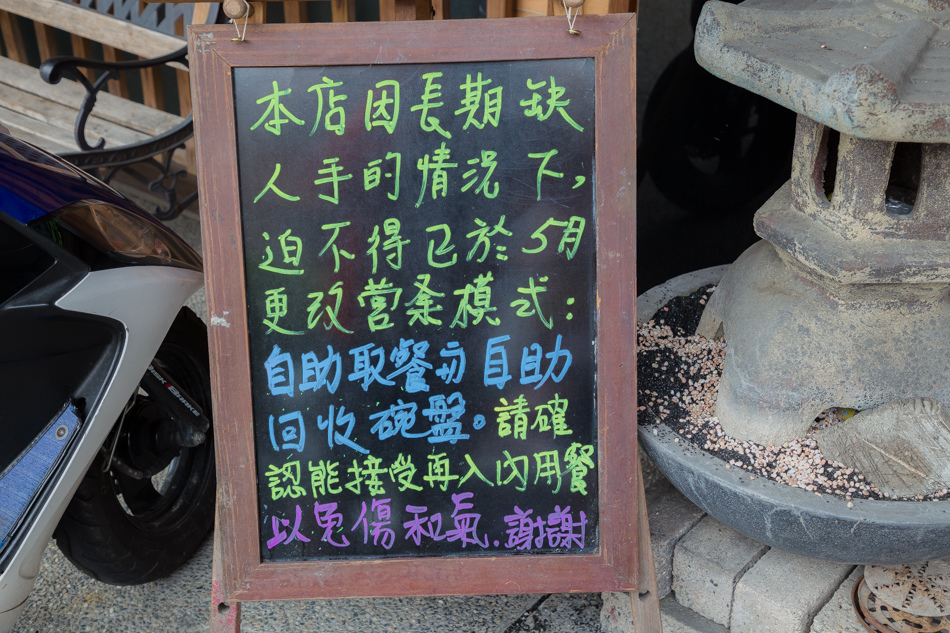 本店因長期缺
人手的情況下,
迫不得已於5月
更改營業模式:
自助取餐及自助
回收碗盤。請確
認能接受再入內用餐
以免傷和氣.謝謝